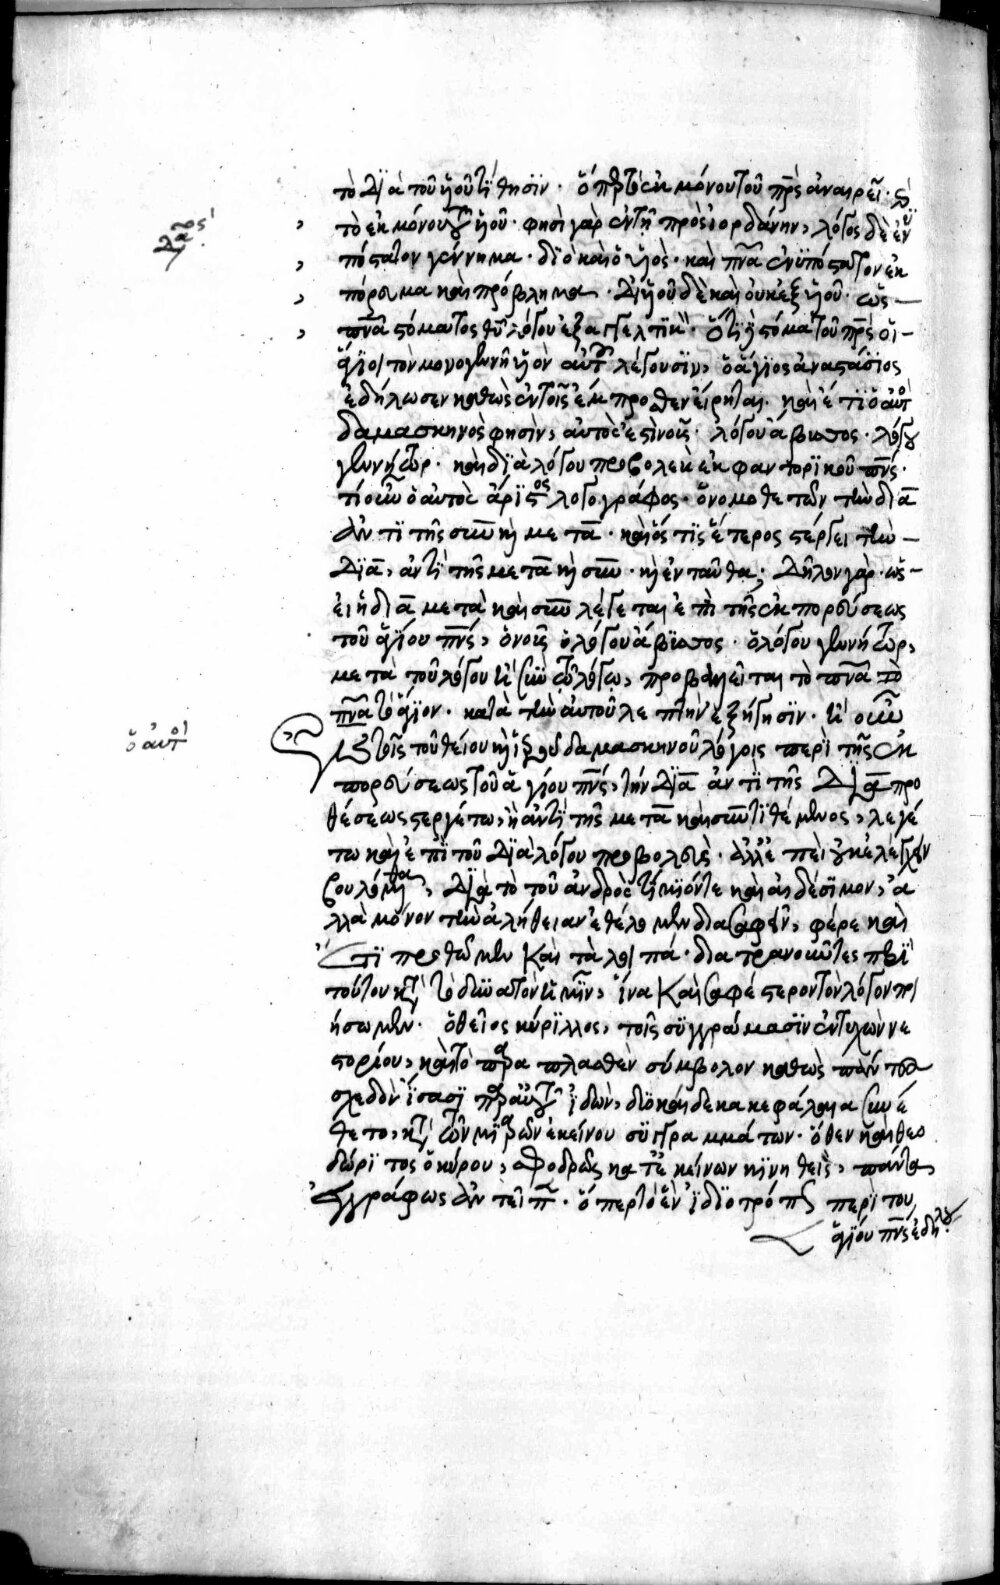 τὸ διὰ τοῦ ϋἱοῦ τίθησϊν · ὅπερ τὸ ἐκ μόνου τοῦ π̅ρ̅ς ἀναιρεῖ ·
τὸ ἐκ μόνου τοῦ ϋἱοῦ · φησὶ γὰρ ἐν τῆ πρὸς ἰορδάνην, λόγος δὲ ἐνϋ
πόστατον γέννημα · διὸ καὶ ὁ ϋἱὸς · καὶ π̅ν̅α ἐνϋπόστατον ἐκ
πόρευμα καὶ πρόβλημα · δι' ϋἱοῦ δὲ καὶ οὐκ ἐξ ϋἱοῦ · ὡς
π̅ν̅α στόματος θ̅υ̅ λόγου ἐξαγγελτικὸν · ὅτι στόμα τοῦ π̅ρ̅ς οἱ
ἅγϊοι τὸν μονογενῆ ϋἱὸν αὐτοῦ λέγουσϊν, ὁ ἅγϊος ἀναστάσϊος
ἐδήλωσεν καθὼς ἐν τοῖς ἔμπροθεν εἴρηται · καὶ ἔτι ὁ αὐτὸς
δαμασκηνὸς φησὶν, αὐτὸς ἐστὶ νοῦς · λόγου ἄβυσσος · λόγου
γεννήτωρ · καὶ διὰ λόγου προβολεὺς ἐκφαντορϊκοῦ π̅ν̅ς ·
τί οὖν ὁ αὐτὸς ἄρϊστος λογογράφος · ὁ νομοθετῶν τὴν διὰ
ἀντὶ τῆς σὺν κὶ μετὰ · καὶ ὅς τϊς ἕτερος στέργει τὴν
διὰ, ἀντὶ τῆς μετὰ κὶ σὺν · κὶ ἐνταῦθα ; δῆλον γὰρ · ὡς
εἰ ἡ διὰ μετὰ καὶ σὺν λέγεται ἐπὶ τῆς ἐκπορεύσεως
τοῦ ἁγίου π̅ν̅ς, ὁ νοῦς ὁ λόγου ἄβϋσσος · ὁ λόγου γεννήτωρ,
μετὰ τοῦ λόγου κὶ σὺν τῶ λόγω, προβαλεῖται τὸ π̅ν̅α τὸ
π̅ν̅α τὸ ἅγϊον · κατὰ τὴν αὐτοῦ λεπτὴν ἐξήγησϊν · εἰ οὖν
ἐν τοῖς τοῦ θείου κὶ ἱεροῦ δαμασκηνοῦ λόγοις περὶ τῆς ἐκ
πορεύσεως τοῦ ἁγίου π̅ν̅ς, τὴν διὰ ἀντὶ τῆς διὰ προ
θέσεως στεργέτω, ἢ ἀντὶ τῆς μετὰ καὶ σὺν τϊθέμενος, λεγέ
τω καὶ ἐπὶ τοῦ διὰ λόγου προβολεὺς · ἀλλ' ἐπεὶ οὐκ ἐλέγχειν
βουλόμεθα, διὰ τὸ τοῦ ἀνδρὸς τίμϊόν τε καὶ αἰδέσϊμον, ἀ
λλὰ μόνον τὴν ἀλήθειαν ἐθέλομεν διασαφεῖν, φέρε καὶ
ἔτϊ προθῶμεν καὶ τὰ λοιπὰ · διατρανοῦντες περὶ
τούτου κατὰ τὸ δυνατὸν ἡμῖν, ἵνα καὶ σαφέστερον τὸν λόγον ποι
ήσωμεν · ὁ θεῖος κύρϊλλος, τοῖς συγγράμασϊν ἐντυχὼν νε
στορίου, καὶ τὸ παρα πλασθὲν σύμβολον καθὼς πάντες
σχεδὸν ἴσασϊ παρ' αὐτοῦ ἰδὼν, δϊὸ καὶ δέκα κεφάλαια συνέ
θετο, κατὰ τῶν μιαρῶν ἐκείνου συγγραμμάτων · ὅθεν καὶ θεο
δώρϊτος ὁ κύρου, σφοδρῶς κατ' ἐκείνων κϊνηθεὶς, πάντα
ἐγγράφως ἀντεῖπε · ὅπερ τὸ ἓν ἰδϊοτρόπως περὶ τοῦ
ἁγϊου π̅ν̅ς ἐδήλου
ὁ αὐτὸς